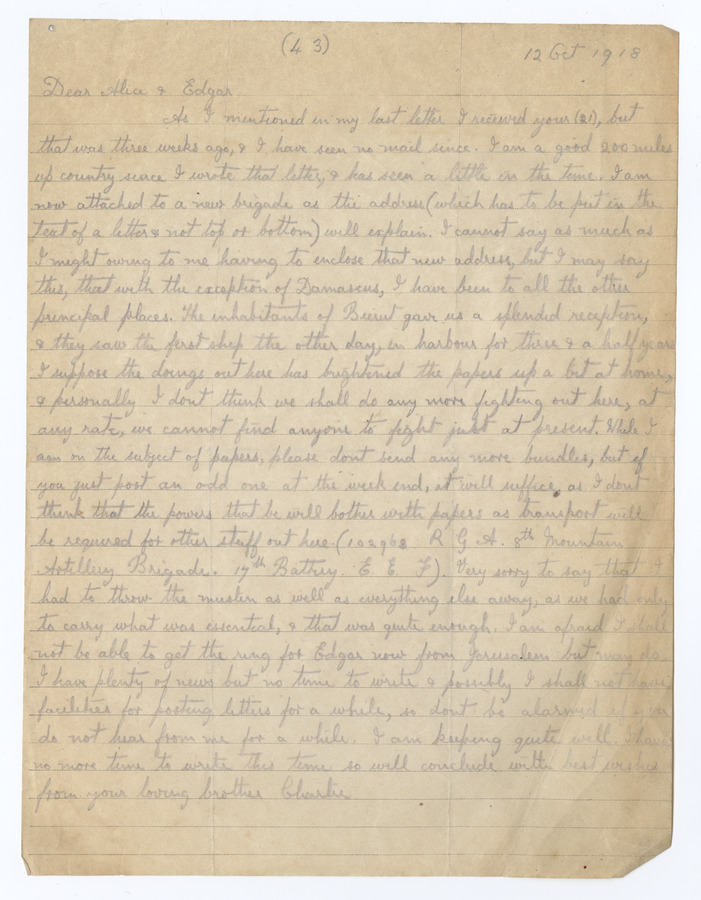 (43)
12 Oct 1918
Dear Alice & Edgar
As I mentioned in my last letter I received your (21), but
that was three weeks ago, & I have seen no mail since. I am a good 200 miles
up country since I wrote that letter, & has seen a little in the time. I am
now attached to a new brigade as the address (which has to be put in the
text of a letter & not top or bottom) will explain. I cannot say as much as
I might owing to me having to enclose that new address, but I may say
this, that with the exception of Damascus, I have been to all the other
principal places. The inhabitants of Beirut gave us a splendid reception,
& they saw the first ship the other day, in harbour for three & a half years
I suppose the doings out here has brightened the papers up a bit at home,
& personally I dont think we shall do any more fighting out here, at
any rate, we cannot find anyone to fight just at present. While I
am on the subject of papers, please dont send any more bundles, but if
you just post an odd one at the week end, it will suffice, as I dont
think that the powers that be will bother with papers as transport will
be required for other stuff out here. (102968 R G A. 8th Mountain
Artillery Brigade. 17th Battery. E. E. F). Very sorry to say that I
had to throw the muslin as well as everything else away, as we had only
to carry what was essential, & that was quite enough. I am afraid I shall
not be able to get the ring for Edgar now from Jerusalem but may do.
I have plenty of news but no time to write & possibly I shall not have
facilities for posting letters for a while, so dont be alarmed if you
do not hear from me for a while. I am keeping quite well. I have
no more time to write this time so will conclude with best wishes
from your loving brother Charlie